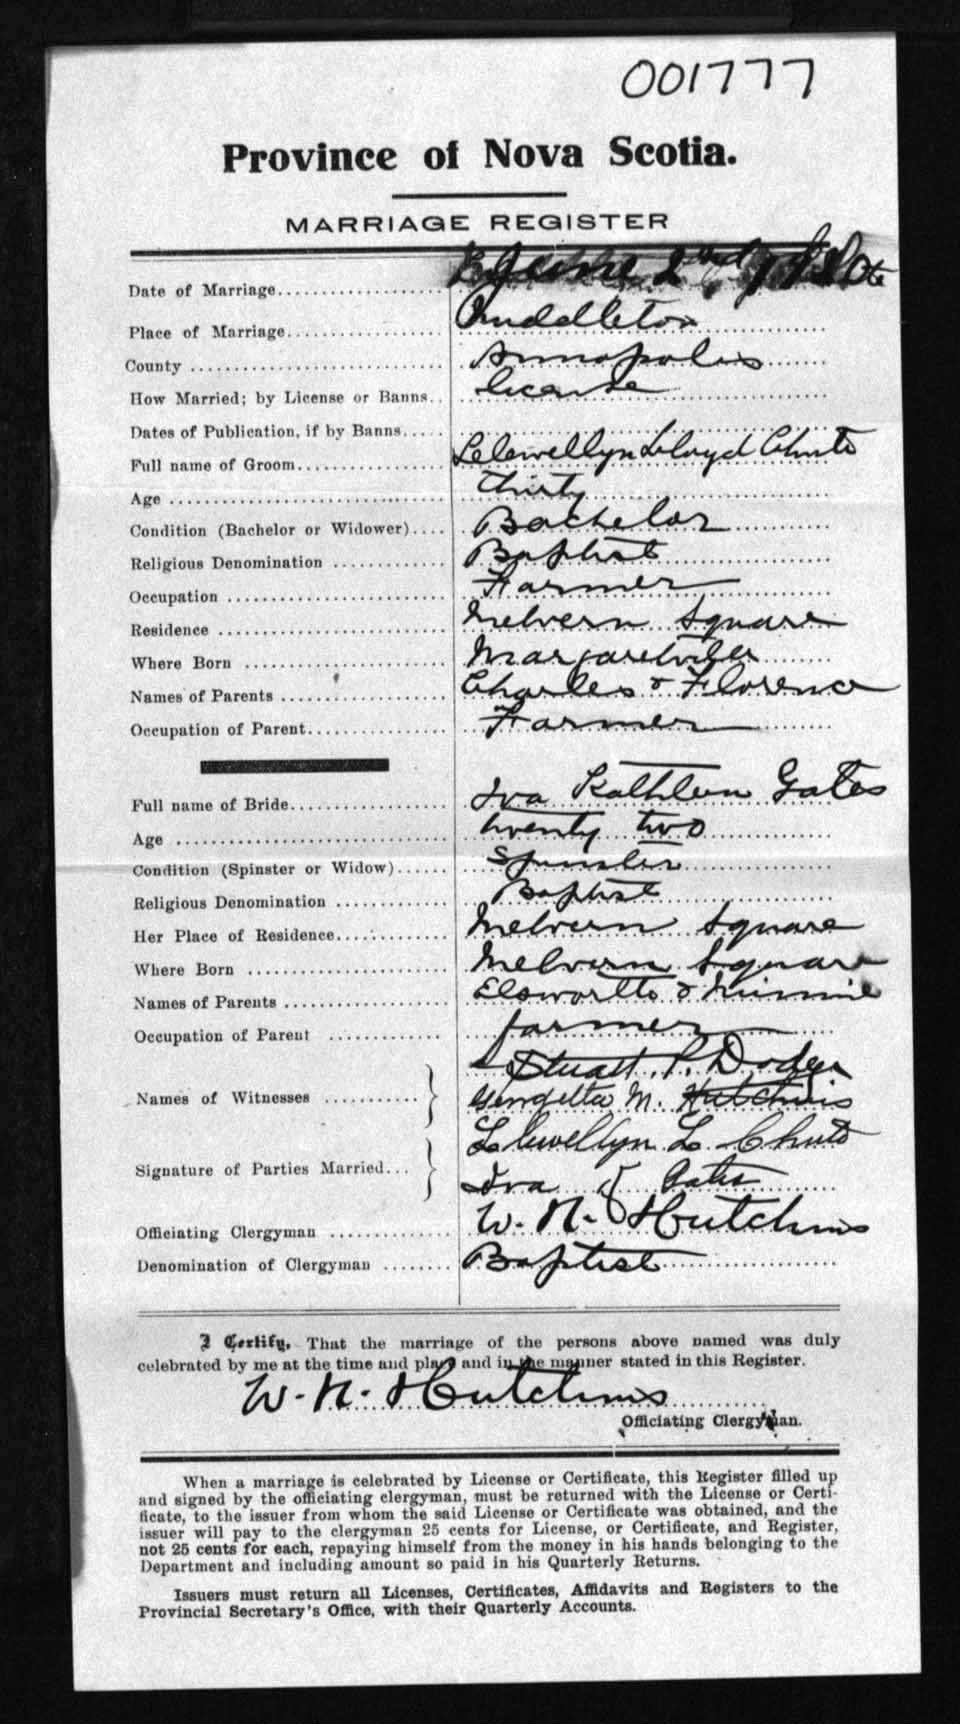 001777
Province of Nova Scotia.
MARRIAGE REGISTER
Date of Marriage.................... June 2nd,
Place of Marriage................... Middleton
County ............................. Annapolis
How Married; by License or Banns.. license
Dates of Publication, if by Banns.....
Full name of Groom.................. Lelewellyn Lloyd Chute
Age ................................ thirty
Condition (Bachelor or Widower).... Bachelor
Religious Denomination ............. Baptist
Occupation ......................... Farmer
Residence .......................... Melvern Square
Where Born ......................... Margaretville
Names of Parents ................... Charles & Florence
Occupation of Parent................ Farmer
Full name of Bride.................. Iva Kathleen Gates
Age ................................ twenty two
Condition (Spinster or Widow)...... Spinster
Religious Denomination ............. Baptist
Her Place of Residence.............. Melvern Square
Where Born ......................... Melvern Square
Names of Parents ................... Elsworth & Minnie
Occupation of Parent ............... farmer
Names of Witnesses ........... Stuart P. Dodge
Georgetta M. Hutchins
Signature of Parties Married... Llewellyn L. Chute
Iva K Gates
Officiating Clergyman .............. W. N. Hutchins
Denomination of Clergyman ........ Baptist
I Certify, That the marriage of the persons above named was duly
celebrated by me at the time and place and in the manner stated in this Register.
W. N. Hutchins
Officiating Clergyman.
When a marriage is celebrated by License or Certificate, this Register filled up
and signed by the officiating clergyman, must be returned with the License or Certi-
ficate, to the issuer from whom the said License or Certificate was obtained, and the
issuer will pay to the clergyman 25 cents for License, or Certificate, and Register,
not 25 cents for each, repaying himself from the money in his hands belonging to the
Department and including amount so paid in his Quarterly Returns.
Issuers must return all Licenses, Certificates, Affidavits and Registers to the
Provincial Secretary's Office, with their Quarterly Accounts.